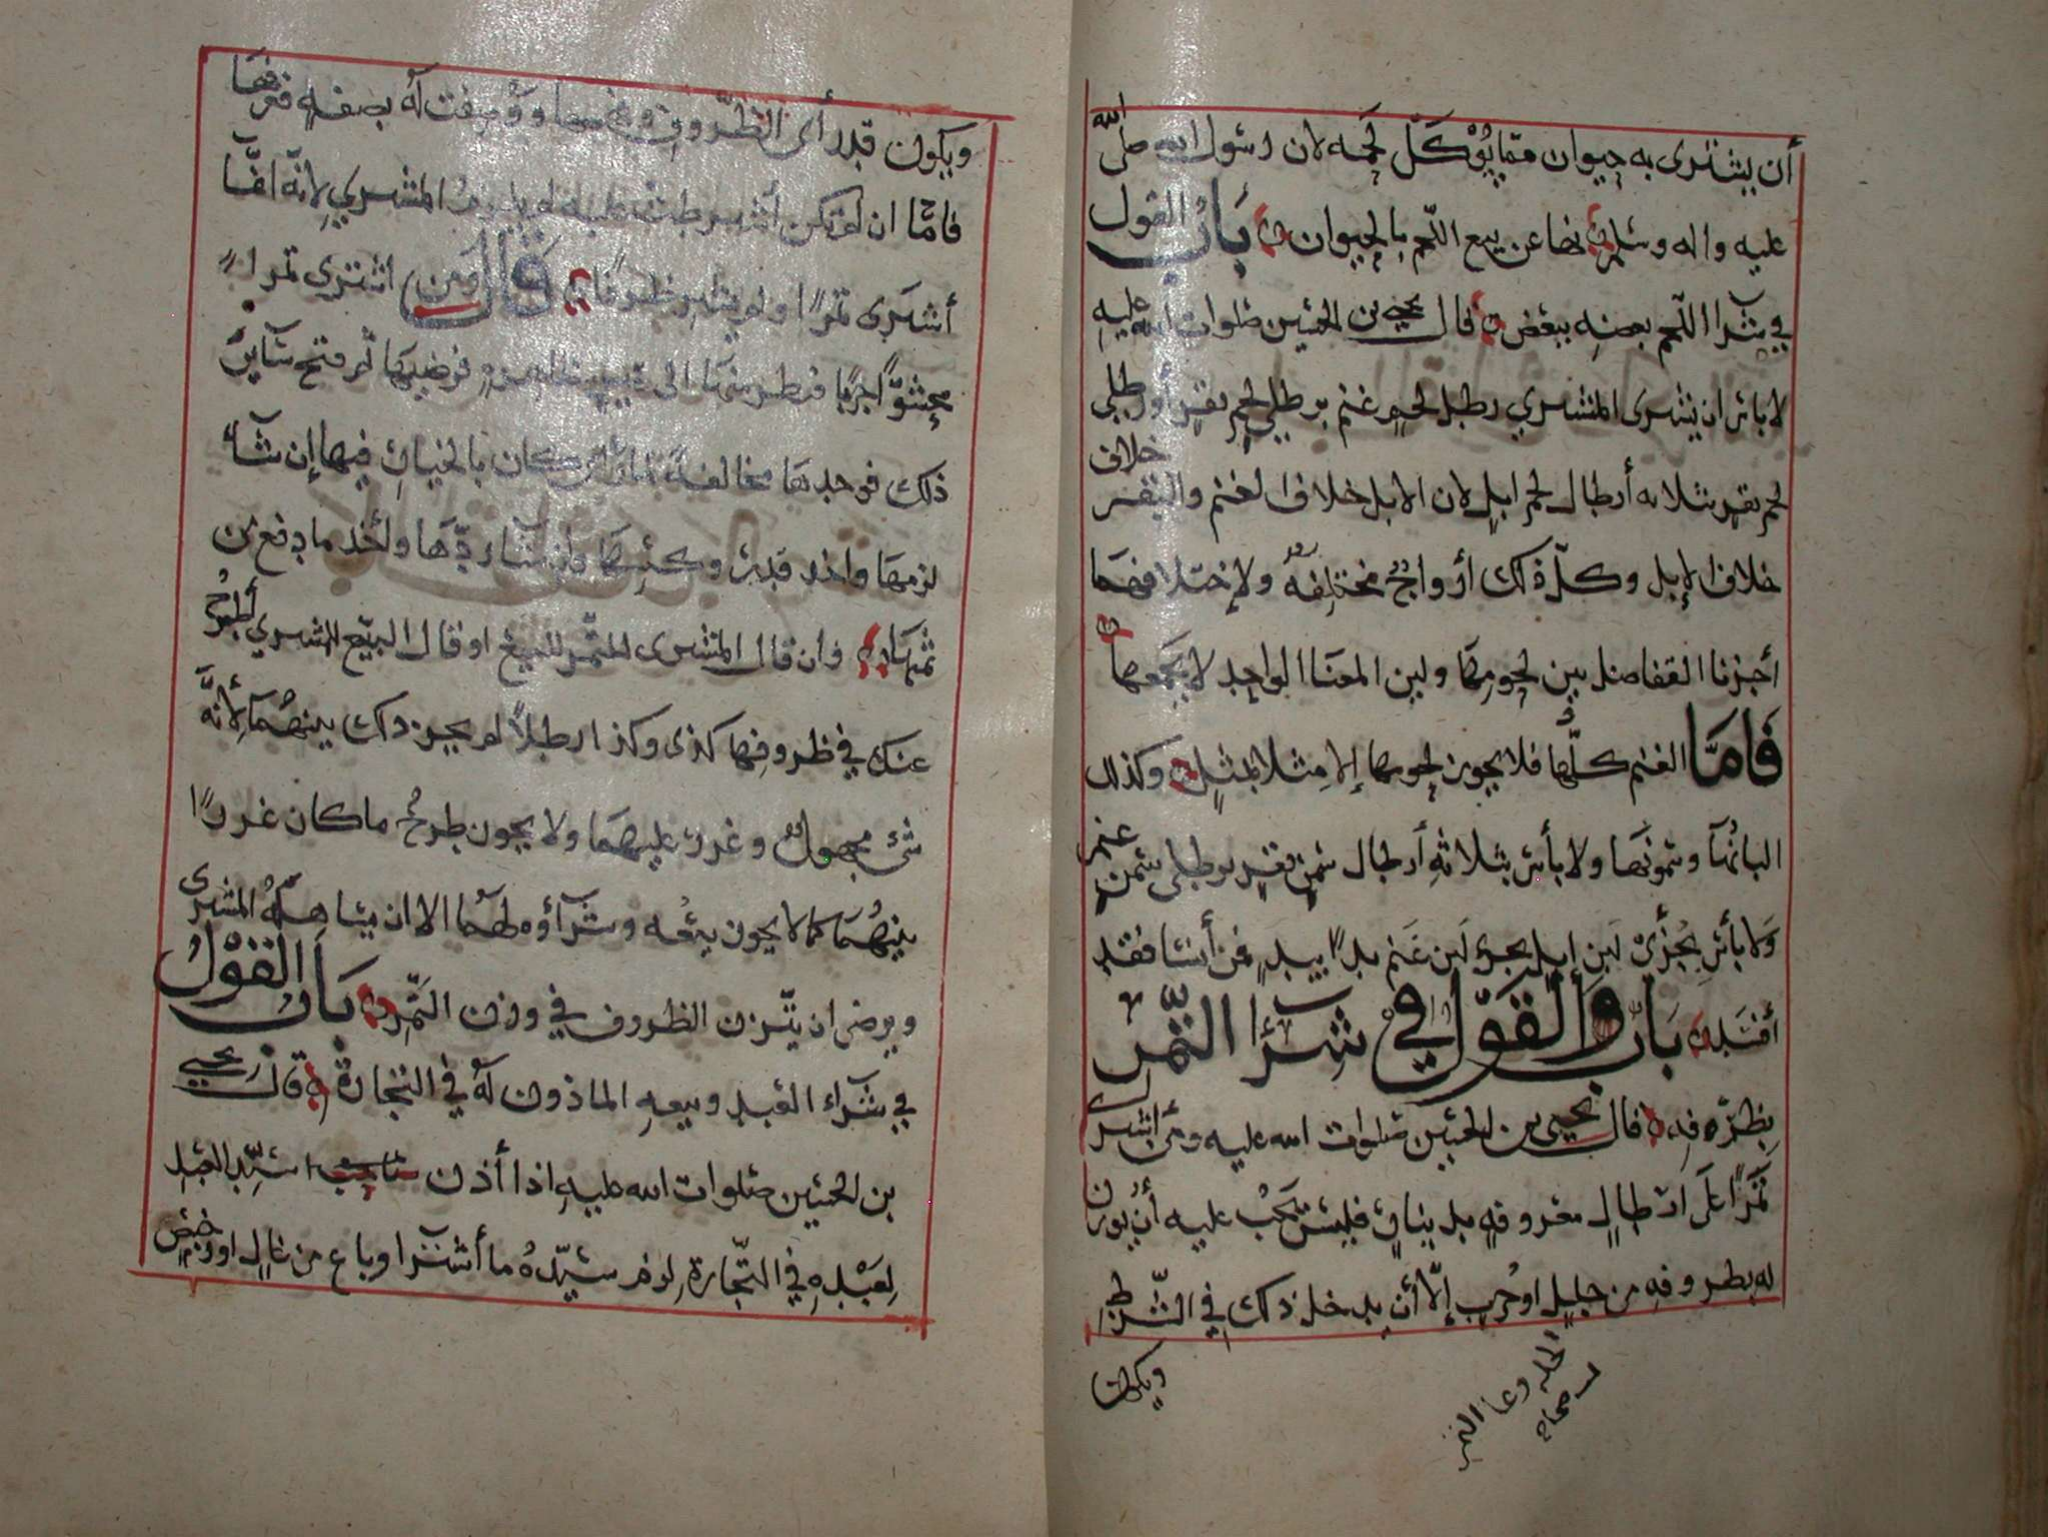 أن يشترى به حيوان مما يؤكل لحمه لان رسول الله صلى الله
عليه واله وسلم نها عن بيع اللحم بالحيوان باب القول
في شرآ اللحم بعضه ببعض قال يحيى بن الحسين صلوات الله عليه
لا باس ان يشرى المشتري رطل لحم غنم برطلي لحم بقر أو رطلي
لحم بقر بثلاثه أرطال لحم ابل لان الابل خلاف الغنم والبقر خلاف
خلاف الإبل وكل ذلك أزواج مختلفه ولإختلافهما
أجزنا التفاضل بين لحومها ولين المعنا الواحد لا يجمعها
فامّا الغنم كلّها فلا يجوز لحومها إلا مثلا بمثل وكذلك
البانها وسمونها ولا بأس بثلاثه أرطال سمن بقر برطلي سمن غنم
ولا بأس بجزئ لبن إبل بجزئ لبن غنم يدا بيد فمن أنسا فقد
أفسد باب والقول في شرآ التمر
بظرفه قال يحيى بن الحسين صلوات الله عليه ومن اشترى
تمرًا على ارطال معروفه بدينار فليس يجب عليه أن يوزن
له بظروفه من جليل او جرب إلّا أن يدخل ذلك في الشرط
ويكون
ويكون قد رأى الظروف وو وصفت له بصفه فعرفها
فامّا ان لم تكن أشرطت عليه لم المشتري لانه انّما
أشترى تمرًا ولم يشتر ظرفا قال ومن اشترى تمرا
محشوًّا جربًا فنظر منها الى فرضيها ثم فتح ساير
ذلك فوجدها مخالفة كان بالخيار فيها إن شآء
لزمها واخذ وان شآ ردّها ولأخذ ما دفع من
ثمنها وان قال المشترى للتمر للبيع او قال البيّع للمشتري أطرح
عنك في ظروفها كذى وكذا رطلاً لم يجز ذلك بينهما لأنّه
شئ مجهول وغرر عليهما ولا يجوز طرح ما كان غررًا
بينهما كما لا يجوز بيعه وشرآؤه لهما الا ان يشا المشترى
ويرضى ان يتّزن الظروف في وزن التّمر باب القول
في شرآء العبد وبيعه الماذون له في التجارة قال يحيى
بن الحسين صلوات الله عليه اذا أذن سيّد العبد
لعبده في التجارة لزم سيّده ما أشترا وباع من غالٍ او رخيص